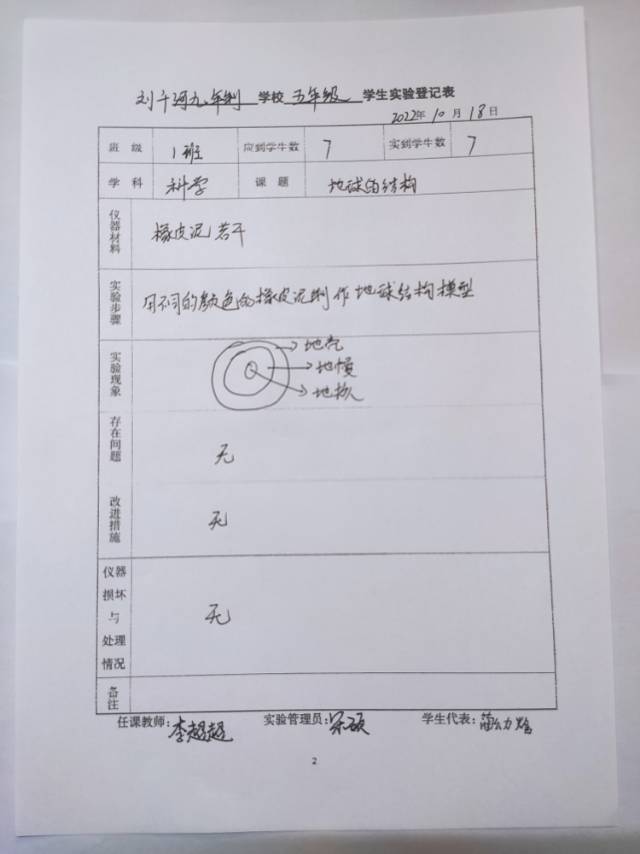 刘千河九年制 学校 五年级 学生实验登记表
2022年10月18日
班级 1班 应到学生数 7 实到学生数 7
学科 科学 课题 地球的结构
仪器材料 橡皮泥若干
实验步骤 用不同的颜色的橡皮泥制作地球结构模型
实验现象
地壳
地幔
地核
存在问题 无
改进措施 无
仪器损坏与处理情况 无
备注
任课教师:李超超 实验管理员:宋硕 学生代表:
2